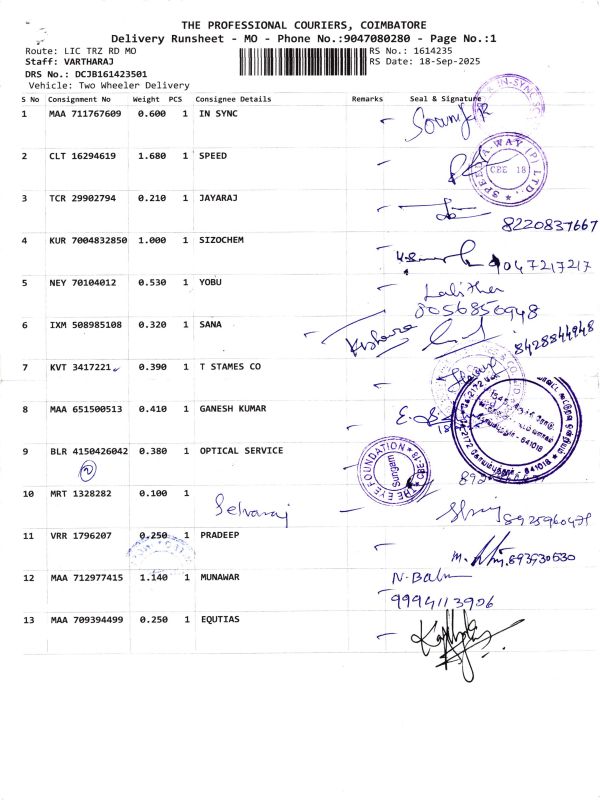 THE PROFESSIONAL COURIERS, COIMBATORE
Delivery Runsheet - MO - Phone No.:9047080280 - Page No.:1
Route: LIC TRZ RD MO RS No.: 1614235
Staff: VARTHARAJ RS Date: 18-Sep-2025
DRS No.: DCJB161423501
Vehicle: Two Wheeler Delivery
S No Consignment No Weight PCS Consignee Details Remarks Seal & Signature
1 MAA 711767609 0.600 1 IN SYNC
2 CLT 16294619 1.680 1 SPEED
SPEED A WAY (P) LTD., CBE 18
3 TCR 29902794 0.210 1 JAYARAJ
8220837667
4 KUR 7004832850 1.000 1 SIZOCHEM
9047217217
5 NEY 70104012 0.530 1 YOBU
Lalitha
6 IXM 508985108 0.320 1 SANA
8428844948
7 KVT 3417221 0.390 1 T STAMES CO
8 MAA 651500513 0.410 1 GANESH KUMAR
9 BLR 4150426042 0.380 1 OPTICAL SERVICE
2
THE EYE FOUNDATION CBE-18
10 MRT 1328282 0.100 1
Selvaraj
8925960478
11 VRR 1796207 0.250 1 PRADEEP
12 MAA 712977415 1.140 1 MUNAWAR
N. Babu
9994113906
13 MAA 709394499 0.250 1 EQUTIAS